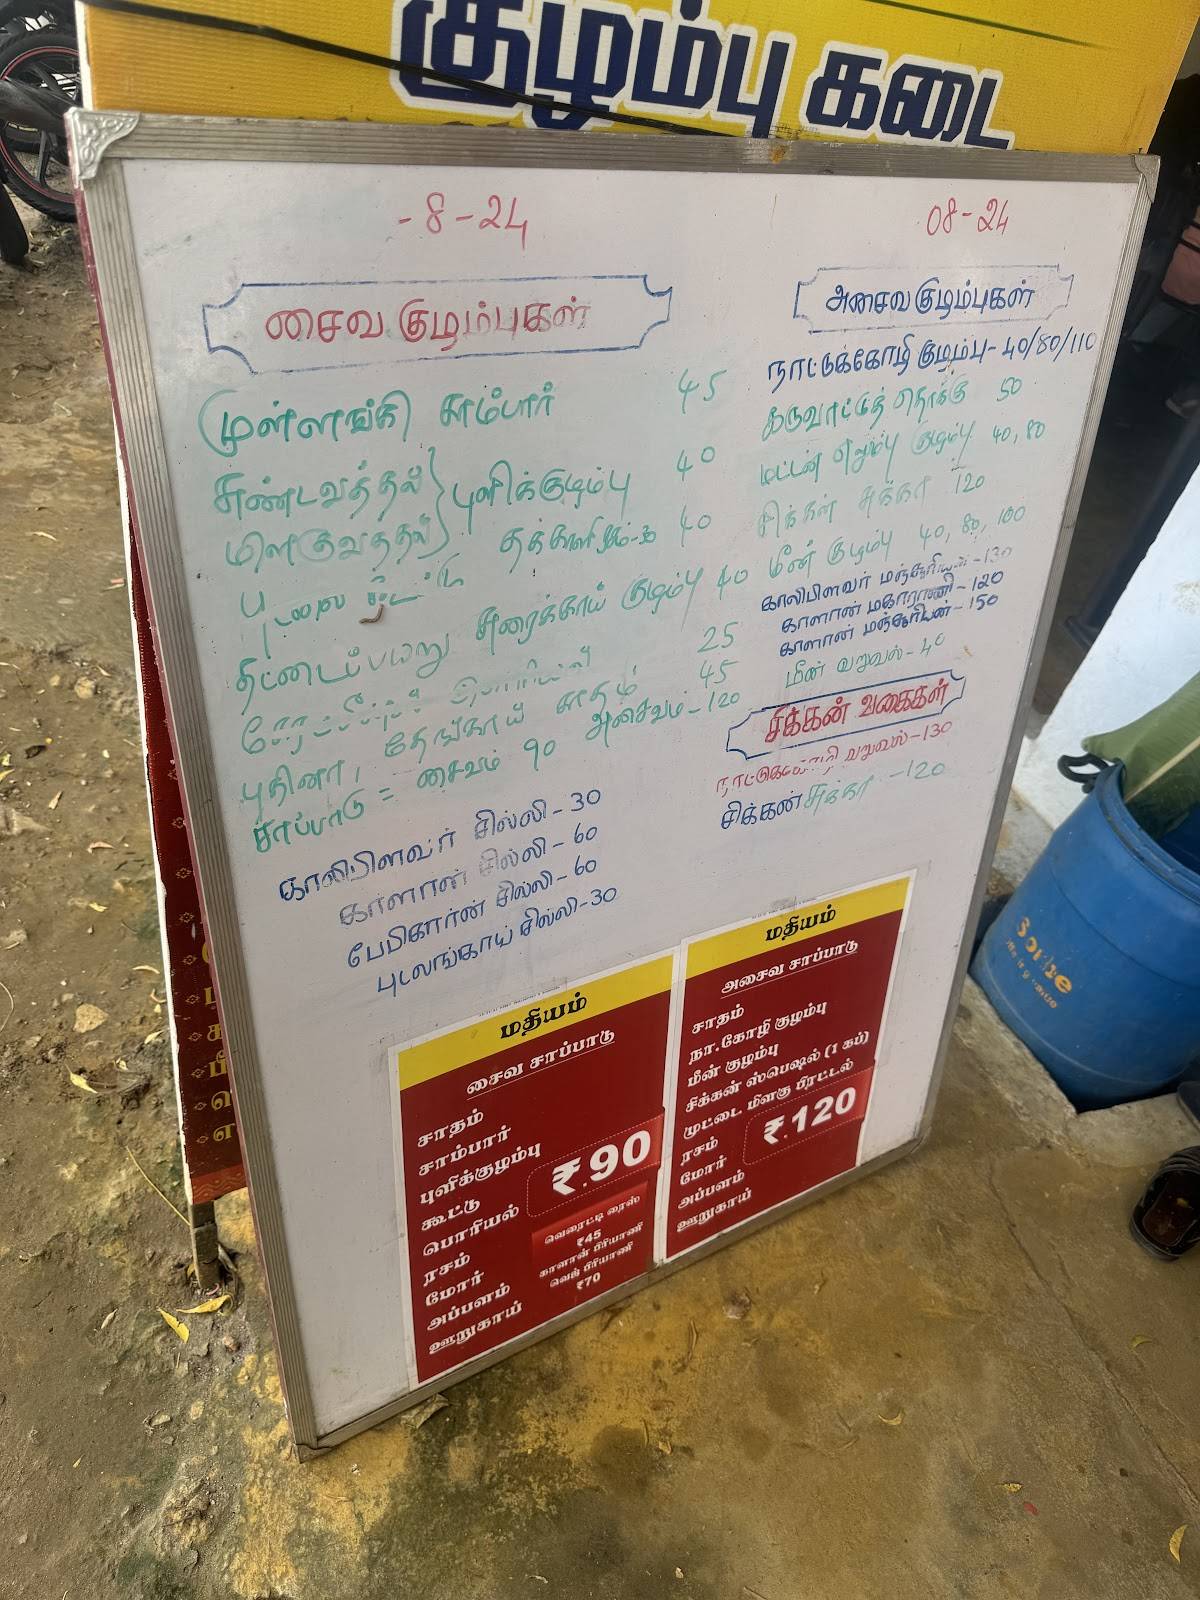 குழம்பு கடை
- 8 - 24
சைவ குழம்புகள்
முள்ளங்கி சாம்பார் 45
சுண்டவத்தல் } புளிக்குழம்பு 40
மிளகுவத்தல்
தக்காளி 40
தட்டைப்பயறு சுரைக்காய் குழம்பு 40
25
புதினா, தேங்காய் சாதம் 45
சாப்பாடு = சைவம் 90 அசைவம் - 120
காலிபிளவர் சில்லி - 30
காளான் சில்லி - 60
பேபிகார்ன் சில்லி - 60
புடலங்காய் சில்லி - 30
08 - 24
அசைவ குழம்புகள்
நாட்டுக்கோழி குழம்பு - 40/80/110
கருவாட்டுத் தொக்கு 50
மட்டன் எலும்பு குழம்பு 40, 80
சிக்கன் சுக்கா 120
மீன் குழம்பு 40, 80, 100
காலிபிளவர் மஞ்சூரியன் - 130
காளான் மகாராணி - 120
காளான் மஞ்சூரியன் - 150
மீன் வறுவல் - 40
சிக்கன் வகைகள்
நாட்டுக்கோழி வறுவல் - 130
சிக்கன் சுக்கா - 120
மதியம்
சைவ சாப்பாடு
சாதம்
சாம்பார்
புளிக்குழம்பு
கூட்டு
பொரியல்
ரசம்
மோர்
அப்பளம்
ஊறுகாய்
₹.90
வெரைட்டி ரைஸ்
₹45
காளான் பிரியாணி
வெஜ் பிரியாணி
₹70
மதியம்
அசைவ சாப்பாடு
சாதம்
நா.கோழி குழம்பு
மீன் குழம்பு
சிக்கன் ஸ்பெஷல் (1 கப்)
முட்டை மிளகு பிரட்டல்
ரசம்
மோர்
அப்பளம்
ஊறுகாய்
₹.120